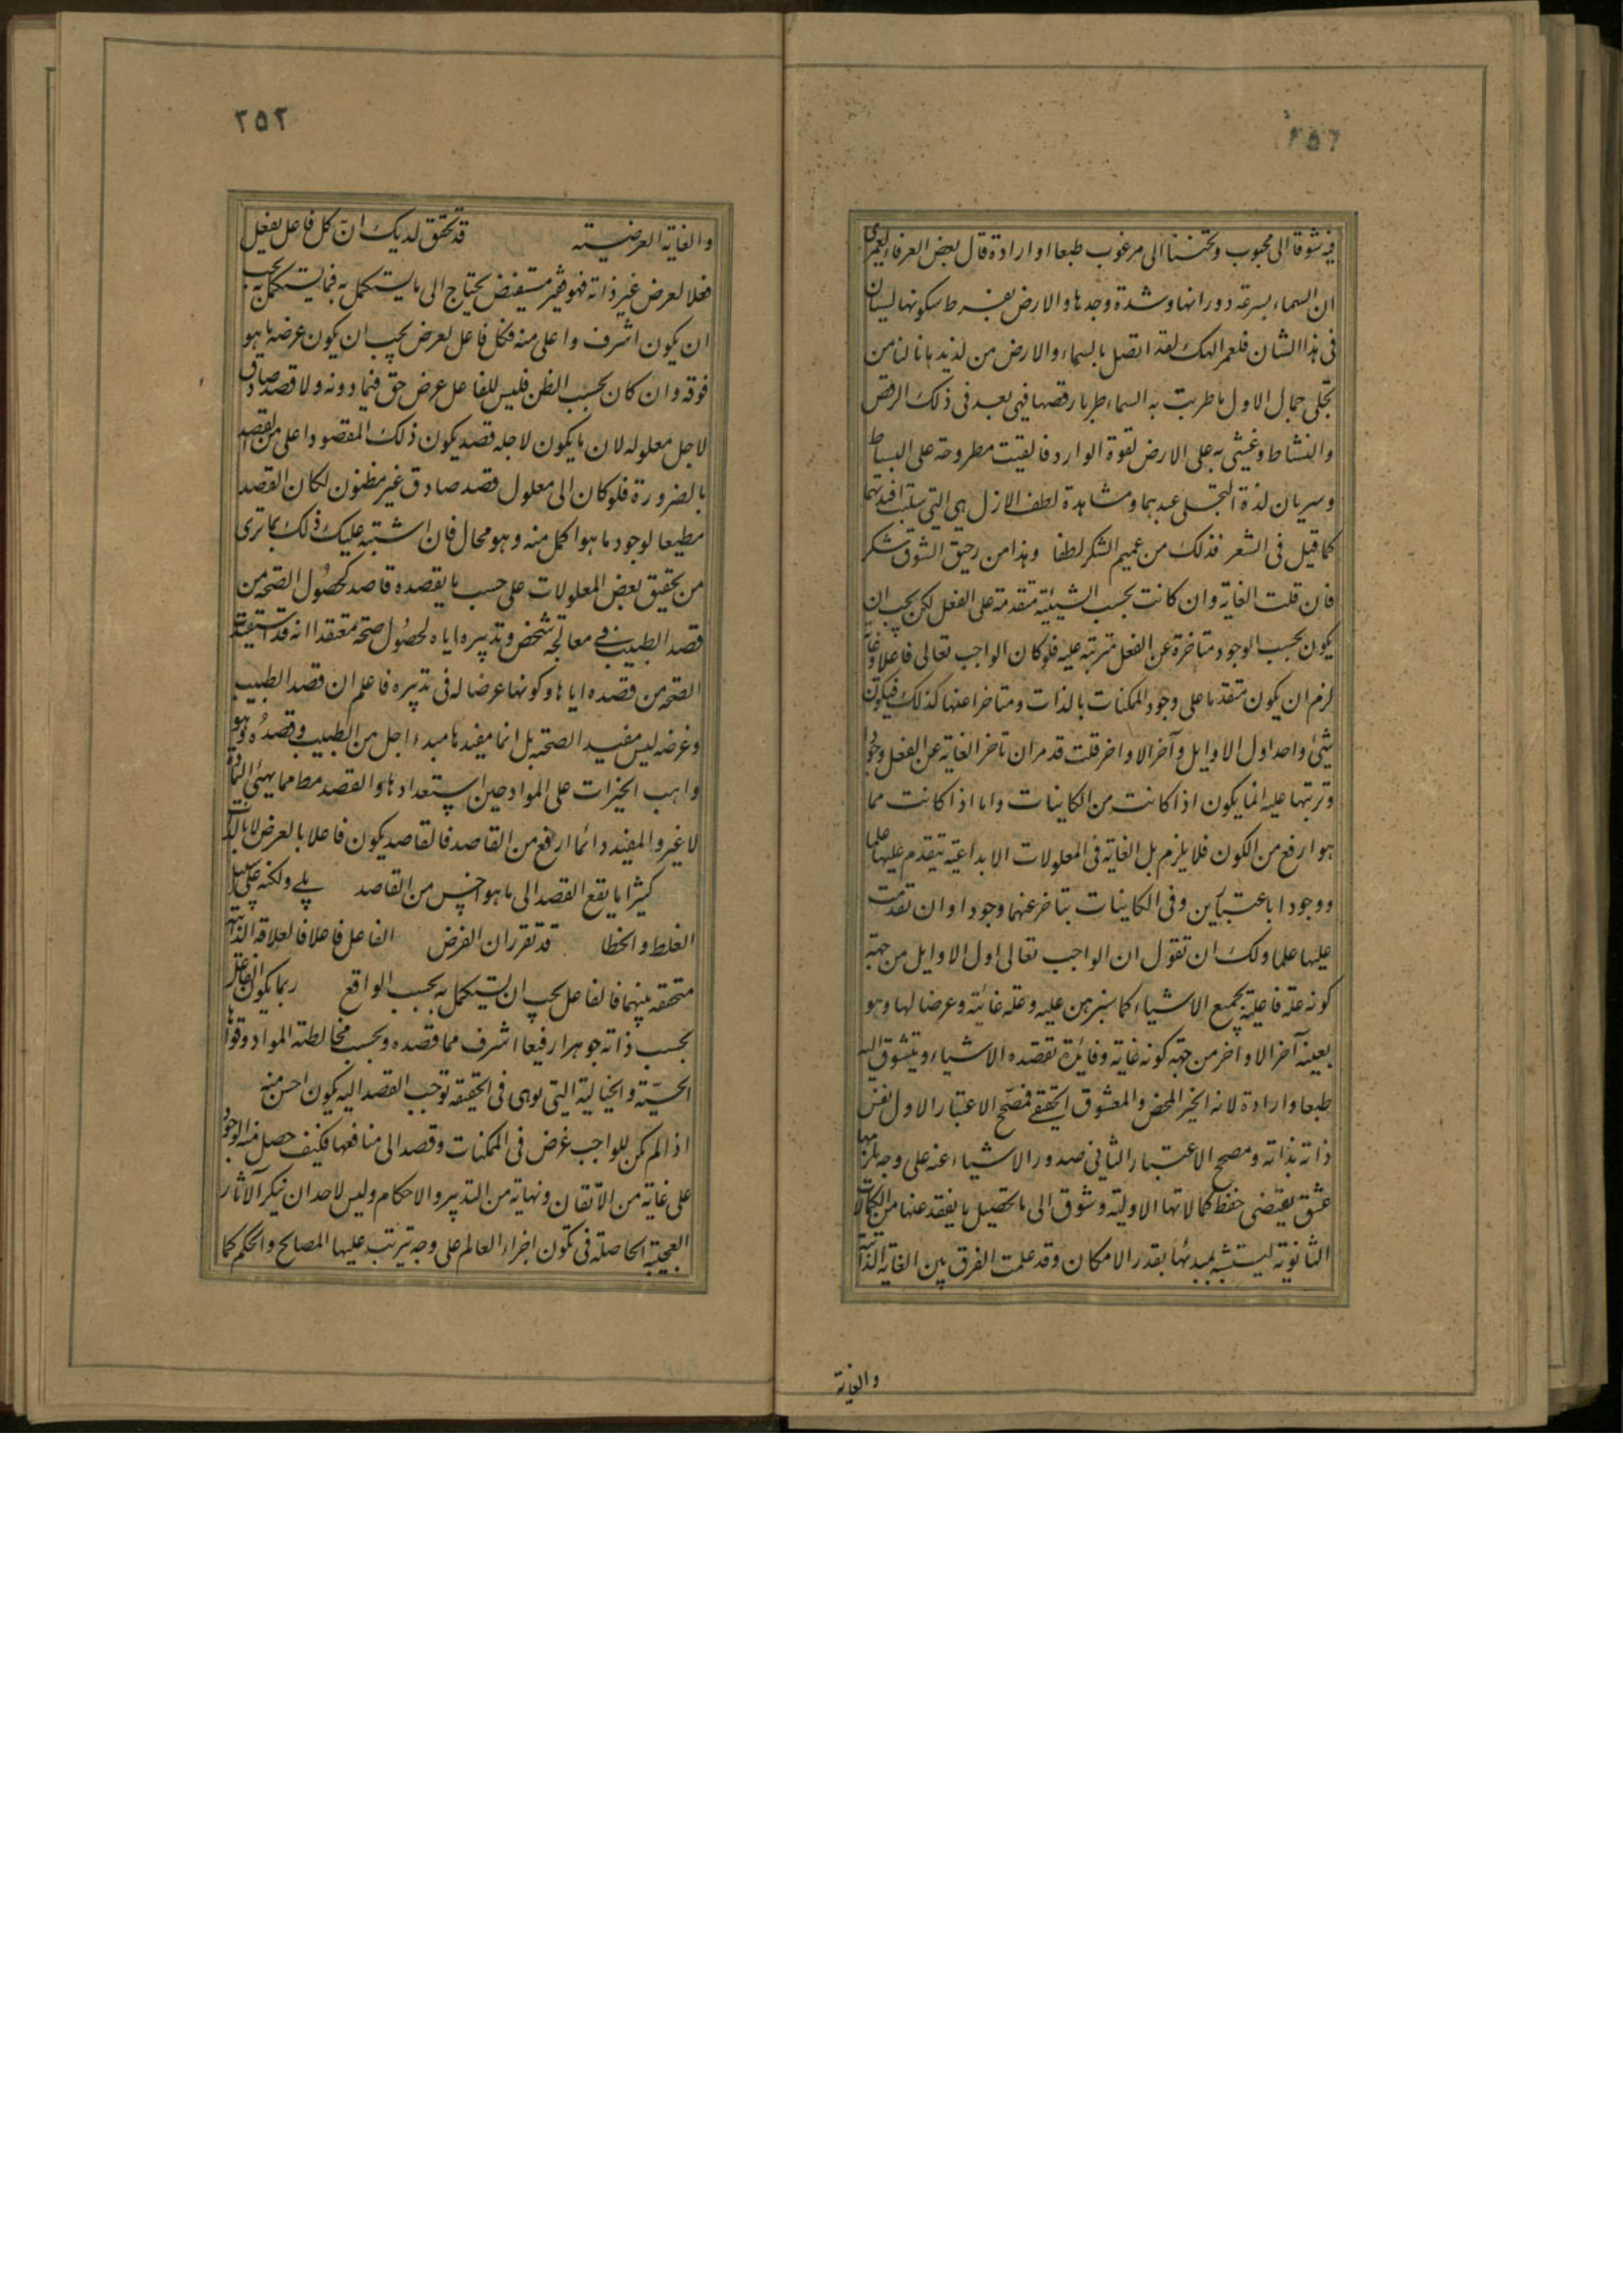 ٢٥٦
فيه شوقا الى محبوب وتحننا الى مرغوب طبعا او ارادة قال بعض العرفاء لعمرى
ان السماء بسرعة دورانها وشدة وجدها والارض بفرط سكونها لسيان
فى هذا الشان فلعمر الهك لقد اتصل بالسماء والارض من لذيذ ما نالنا من
تجلى جمال الاول ما طربت به السماء طربا رقصها فهى بعد فى ذلك الرقص
والنشاط وغشى به على الارض لقوة الوارد فالقيت مطروحة على البساط
وسريان لذة التجلى عبدهما ومشاهدة لطف الازل هى التى سلبت افئدتهما
كما قيل فى الشعر فذلك من عميم الشكر لطفا وهذا من رحيق الشوق شكر
فان قلت الغاية وان كانت بحسب الشيئية متقدمة على الفعل لكن يجب ان
يكون بحسب الوجود متاخرة عن الفعل مترتبة عليه فلو كان الواجب تعالى فاعلا وغاية
لزم ان يكون متقدما على وجود الممكنات بالذات ومتاخرا عنها كذلك فيكون
شئ واحد اول الاوايل وآخر الاواخر قلت قد مر ان تاخر الغاية عن الفعل وجودا
وترتبها عليه انما يكون اذا كانت من الكاينات واما اذا كانت مما
هو ارفع من الكون فلا يلزم بل الغاية فى المعلولات الابداعية يتقدم عليها علما
ووجودا باعتبارين وفى الكاينات يتاخر عنهما وجودا وان تقدمت
عليها علما ولك ان تقول ان الواجب تعالى اول الاوايل من جهة
كونه علة فاعلية لجميع الاشياء كما سنبرهن عليه وعلة غائية وغرضا لها وهو
بعينه آخر الاواخر من جهة كونه غاية وفائدة تقصده الاشياء ويتشوق اليه
طبعا وارادة لانه الخير المحض والمعشوق الحقيقى فمصحح الاعتبار الاول نفس
ذاته بذاته ومصحح الاعتبار الثانى صدور الاشياء عنه على وجه يلزمها
عشق يقتضى حفظ كمالاتها الاولية وشوق الى ما تحصيل ما يفقد عنها من الكمالات
الثانوية ليتشبه بمبدئها بقدر الامكان وقد علمت الفرق بين الغاية الذاتية
والغاية
٢٥٢
والغاية العرضية قد تحقق لديك ان كل فاعل يفعل
فعلا لغرض غير ذاته فهو فقير مستفيض يحتاج الى ما يستكمل به فما يستكمل به يجب
ان يكون اشرف واعلى منه فكل فاعل لغرض يجب ان يكون غرضه ما هو
فوقه وان كان بحسب الظن فليس للفاعل غرض حق فيما دونه ولا قصد صادق
لاجل معلوله لان ما يكون لاجله قصد يكون ذلك المقصود اعلى من القصد
بالضرورة فلو كان الى معلول قصد صادق غير مظنون لكان القصد
مطيعا لوجود ما هو اكمل منه وهو محال فان اشتبه عليك ذلك بما ترى
من تحقيق بعض المعلولات على حسب ما يقصده قاصد كحصول الصحة من
قصد الطبيب فى معالجة شخص وتدبيره اياه لحصول صحته معتقدا انه قد استفيدت
الصحة من قصده اياها وكونها غرضا له فى تدبيره فاعلم ان قصد الطبيب
وغرضه ليس مفيد الصحة بل انما مفيدها مبدء اجل من الطبيب وقصده وهو
واهب الخيرات على المواد حين استعدادها والقصد مط مما يهيئ المادة
لا غير والمفيد دائما ارفع من القاصد فالقاصد يكون فاعلا بالعرض لا بالذات
كثيرا ما يقع القصد الى ما هو اخس من القاصد بلى ولكنه على سبيل
الغلط والخطا قد تقرر ان الغرض الفاعل فاعلا فالعلاقة الذاتية
متحققة بينهما فالفاعل يجب ان يستكمل به بحسب الواقع ربما يكون الفاعل
بحسب ذاته جوهرا رفيعا اشرف مما قصده وبحسب مخالطته المواد وقواها
الحسية والخيالية التى بوهى فى الحقيقة توجب القصد اليه يكون احسن منه
اذا لم يكن للواجب غرض فى الممكنات وقصد الى منافعها فكيف حصل منه الوجود
على غاية من الاتقان ونهاية من التدبير والاحكام وليس لاحد ان ينكر الآثار
العجيبة الحاصلة فى تكون اجزاء العالم على وجه يترتب عليها المصالح والحكم كما